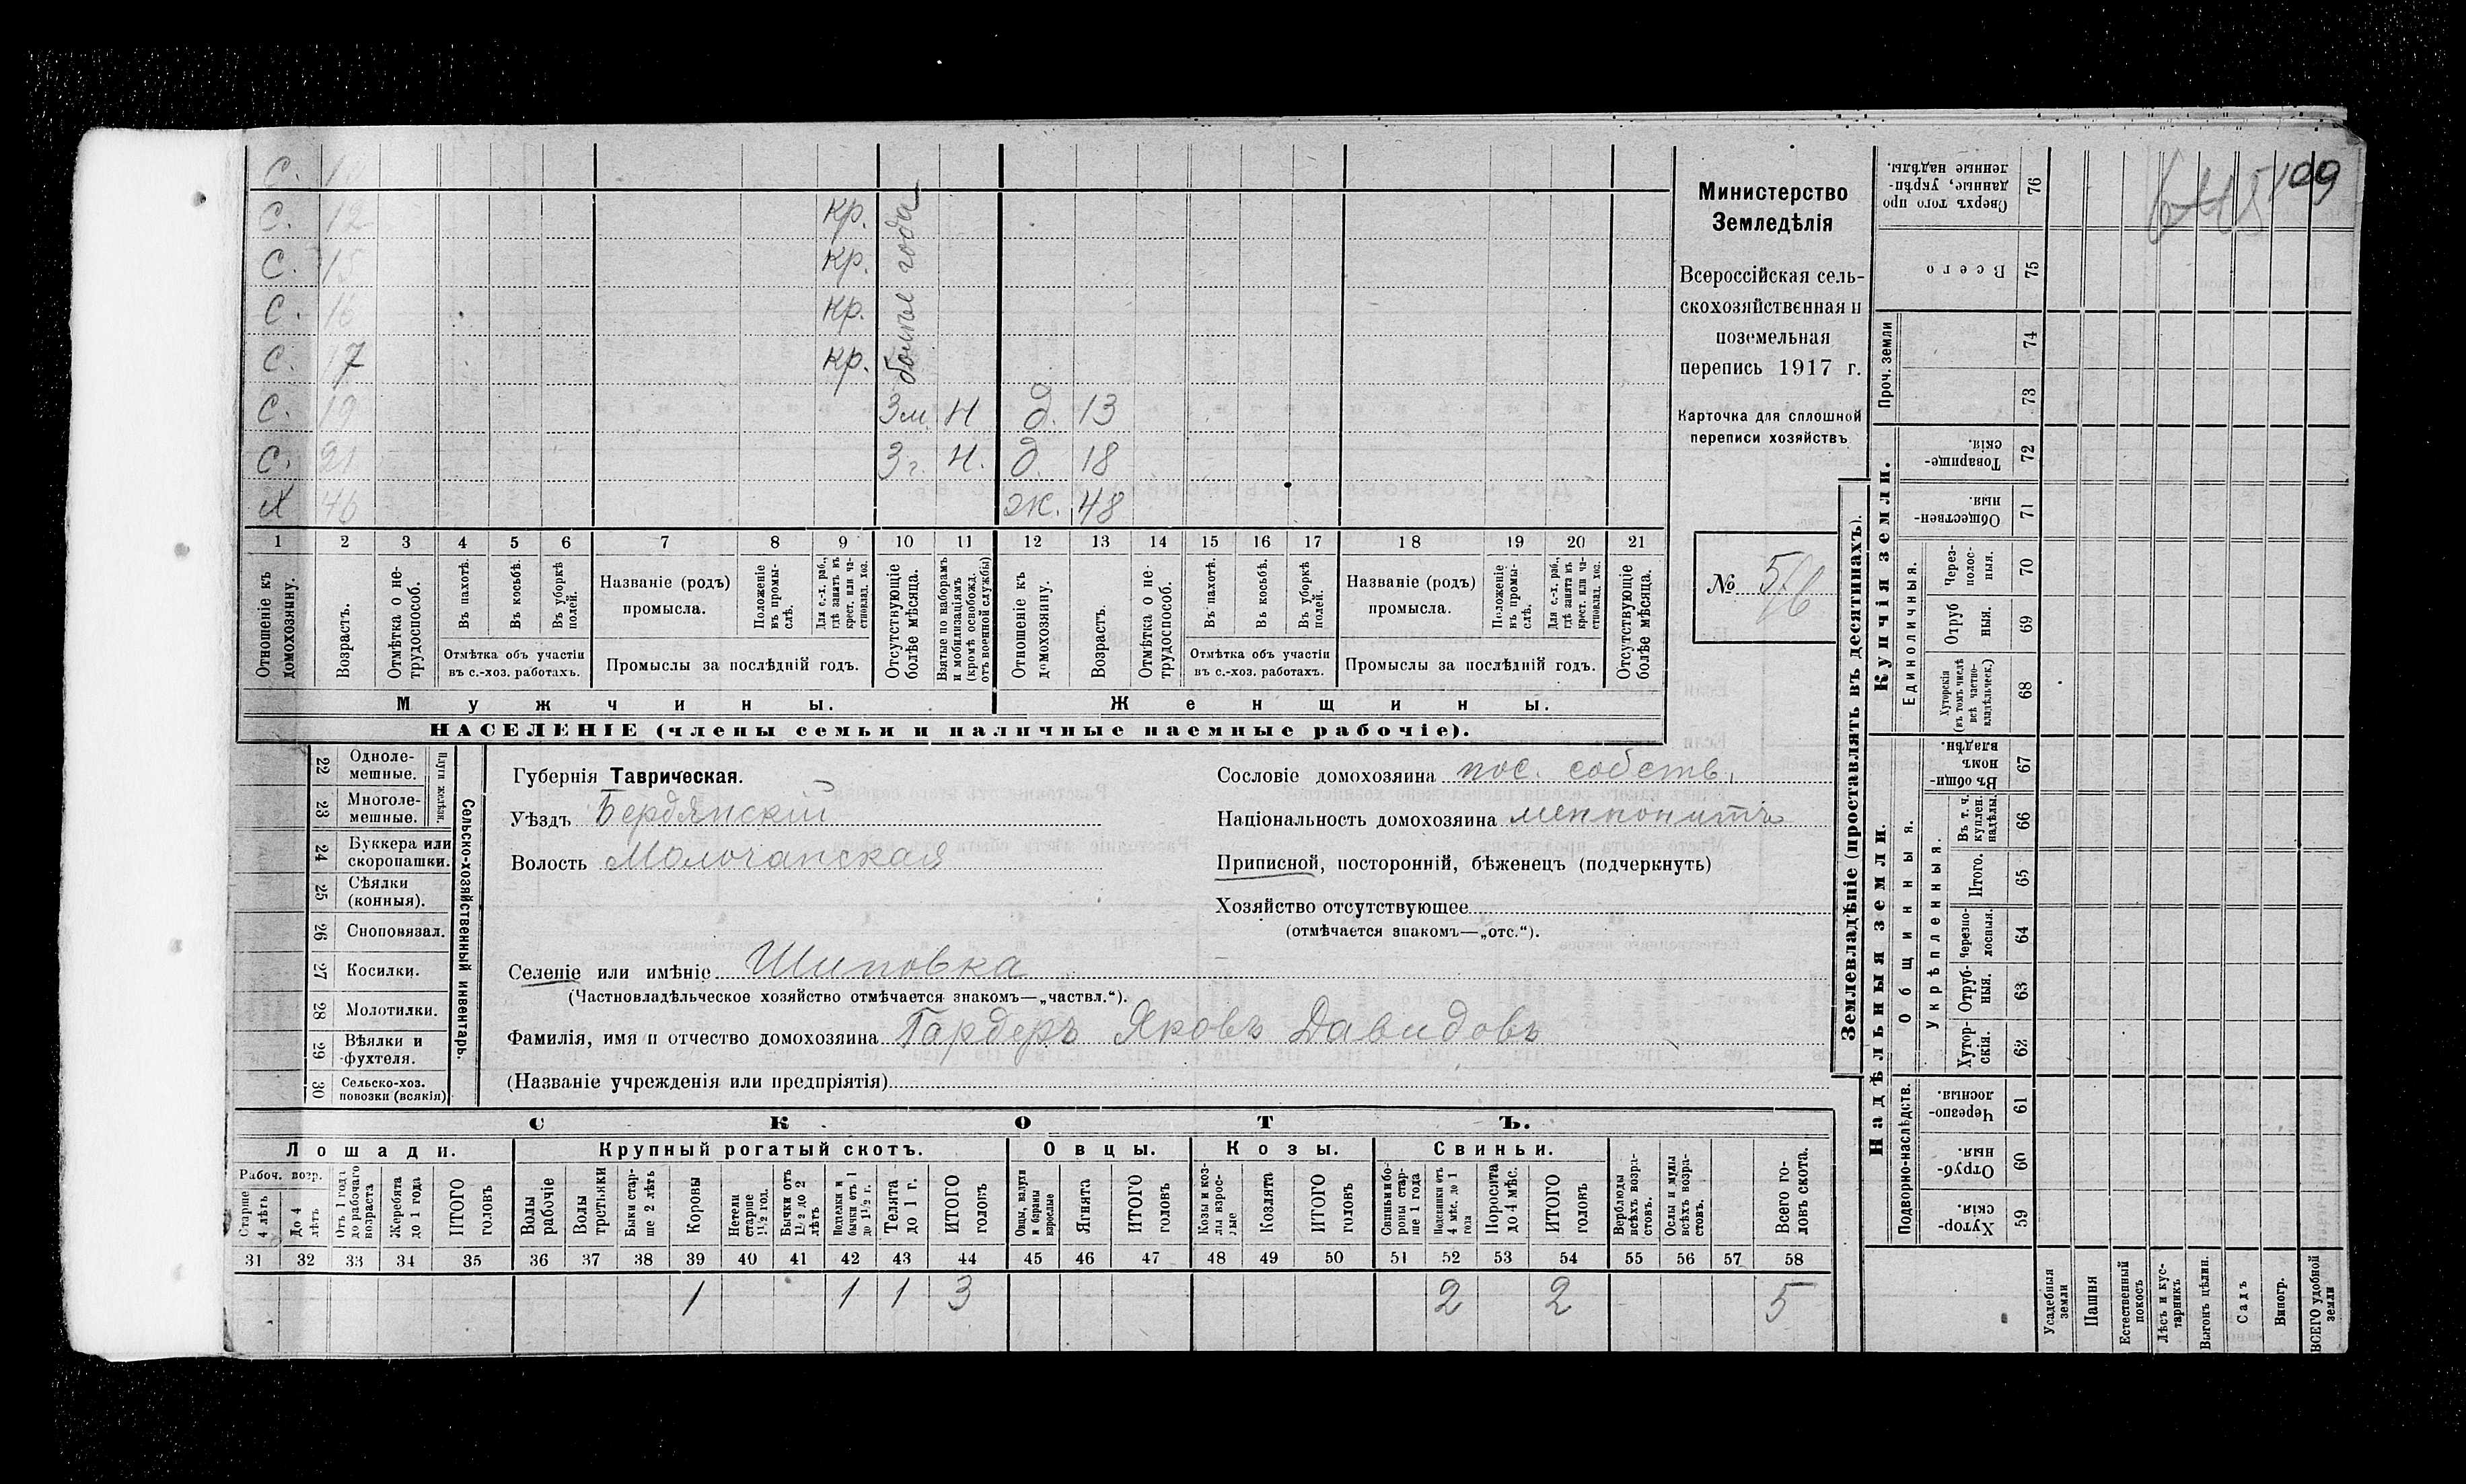 С. 10
С. 12 кр. более года
С. 15 кр.
С. 16 кр.
С. 17 кр.
С. 19 3 м. Н д. 13
С. 21 3 г. Н. д. 18
Х 46 ж. 48
1 2 3 4 5 6 7 8 9 10 11 12 13 14 15 16 17 18 19 20 21
Отношеніе къ домохозяину.
Возрастъ.
Отмѣтка о не-трудоспособ.
Въ пахотѣ.
Въ косьбѣ.
Въ уборкѣ полей.
Отмѣтка объ участіи
въ с.-хоз. работахъ.
Названіе (родъ)
промысла.
Положеніе въ промы-слѣ.
Для с.-х. раб., гдѣ занятъ въ крест. или ча-стновлад. хоз.
Промыслы за послѣдній годъ.
Отсутствующіе болѣе мѣсяца.
Взятые по наборамъ и мобилизаціямъ (кромѣ освобожд. отъ военной службы)
Отношеніе къ домохозяину.
Возрастъ.
Отмѣтка о не-трудоспособ.
Въ пахотѣ.
Въ косьбѣ.
Въ уборкѣ полей.
Отмѣтка объ участіи
въ с.-хоз. работахъ.
Названіе (родъ)
промысла.
Положеніе въ промы-слѣ.
Для с.-х. раб., гдѣ занята въ крест. или ча-стновлад. хоз.
Промыслы за послѣдній годъ.
Отсутствующіе болѣе мѣсяца.
Мужчины. Женщины.
НАСЕЛЕНІЕ (члены семьи и наличные наемные рабочіе).
Министерство
Земледѣлія
Всероссійская сель-
скохозяйственная и
поземельная
перепись 1917 г.
Карточка для сплошной
переписи хозяйствъ
№ 56
22 Одноле-мешные.
23 Многоле-мешные.
Плуги желѣзн.
24 Буккера или скоропашки.
25 Сѣялки (конныя).
26 Сноповязал.
27 Косилки.
28 Молотилки.
29 Вѣялки и фухтеля.
30 Сельско-хоз. повозки (всякія)
Сельско-хозяйственный инвентарь.
Губернія Таврическая.
Уѣздъ Бердянскій
Волость Молочанская
Селеніе или имѣніе Шиповка
(Частновладѣльческое хозяйство отмѣчается знакомъ—„частвл.“).
Фамилія, имя и отчество домохозяина Гардеръ Яковъ Давидовъ
(Названіе учрежденія или предпріятія)
Сословіе домохозяина пос. собств.
Національность домохозяина меннонитъ
Приписной, посторонній, бѣженецъ (подчеркнуть)
Хозяйство отсутствующее
(отмѣчается знакомъ—„отс.“).
СКОТЪ.
Лошади. Крупный рогатый скотъ. Овцы. Козы. Свиньи.
Рабоч. возр.
Старше 4 лѣтъ
До 4 лѣтъ
Отъ 1 года до рабочаго возраста
Жеребята до 1 года
ИТОГО головъ
Волы рабочіе
Волы третьяки
Быки стар-ше 2 лѣтъ
Коровы
Нетели старше 1½ год.
Бычки отъ 1½ до 2 лѣтъ
Подтелки и бычки отъ 1 до 1½ г.
Телята до 1 г.
ИТОГО головъ
Овцы, валухи и бараны взрослые
Ягнята
ИТОГО головъ
Козы и коз-лы взрос-лые
Козлята
ИТОГО головъ
Свиньи и бо-роны стар-ше 1 года
Подсвинки отъ 4 мѣс. до 1 года
Поросята до 4 мѣс.
ИТОГО головъ
Верблюды всѣхъ возра-стовъ.
Ослы и мулы всѣхъ возра-стовъ.
Всего го-ловъ скота.
31 32 33 34 35 36 37 38 39 40 41 42 43 44 45 46 47 48 49 50 51 52 53 54 55 56 57 58
1 1 1 3 2 2 5
Землевладѣніе (проставлять въ десятинахъ).
Сверхъ того про данные, укрѣп-ленные надѣлы. 76
Всего 75
Проч. земли 74 73
Купчія земли.
Товарище-скія. 72
Обществен-ныя. 71
Единоличныя.
Через-полос-ныя. 70
Отруб ныя. 69
Хуторскія (въ томъ числѣ всѣ частно-владѣльческ.) 68
Надѣльныя земли.
Общинныя.
Въ общин-номъ владѣн. 67
Укрѣпленныя.
Въ т. ч. куплен. надѣлы. 66
Итого. 65
Черезпо-лосныя. 64
Отруб-ныя. 63
Хутор-скія. 62
Подворно-наслѣдств.
Черезпо-лосныя. 61
Отруб-ныя. 60
Хутор-скія. 59
Усадебныя земли
Пашня
Естественный покосъ
Лѣсъ и кус-тарникъ
Выгонъ цѣлин.
Садъ
Виногр.
ВСЕГО удобной земли